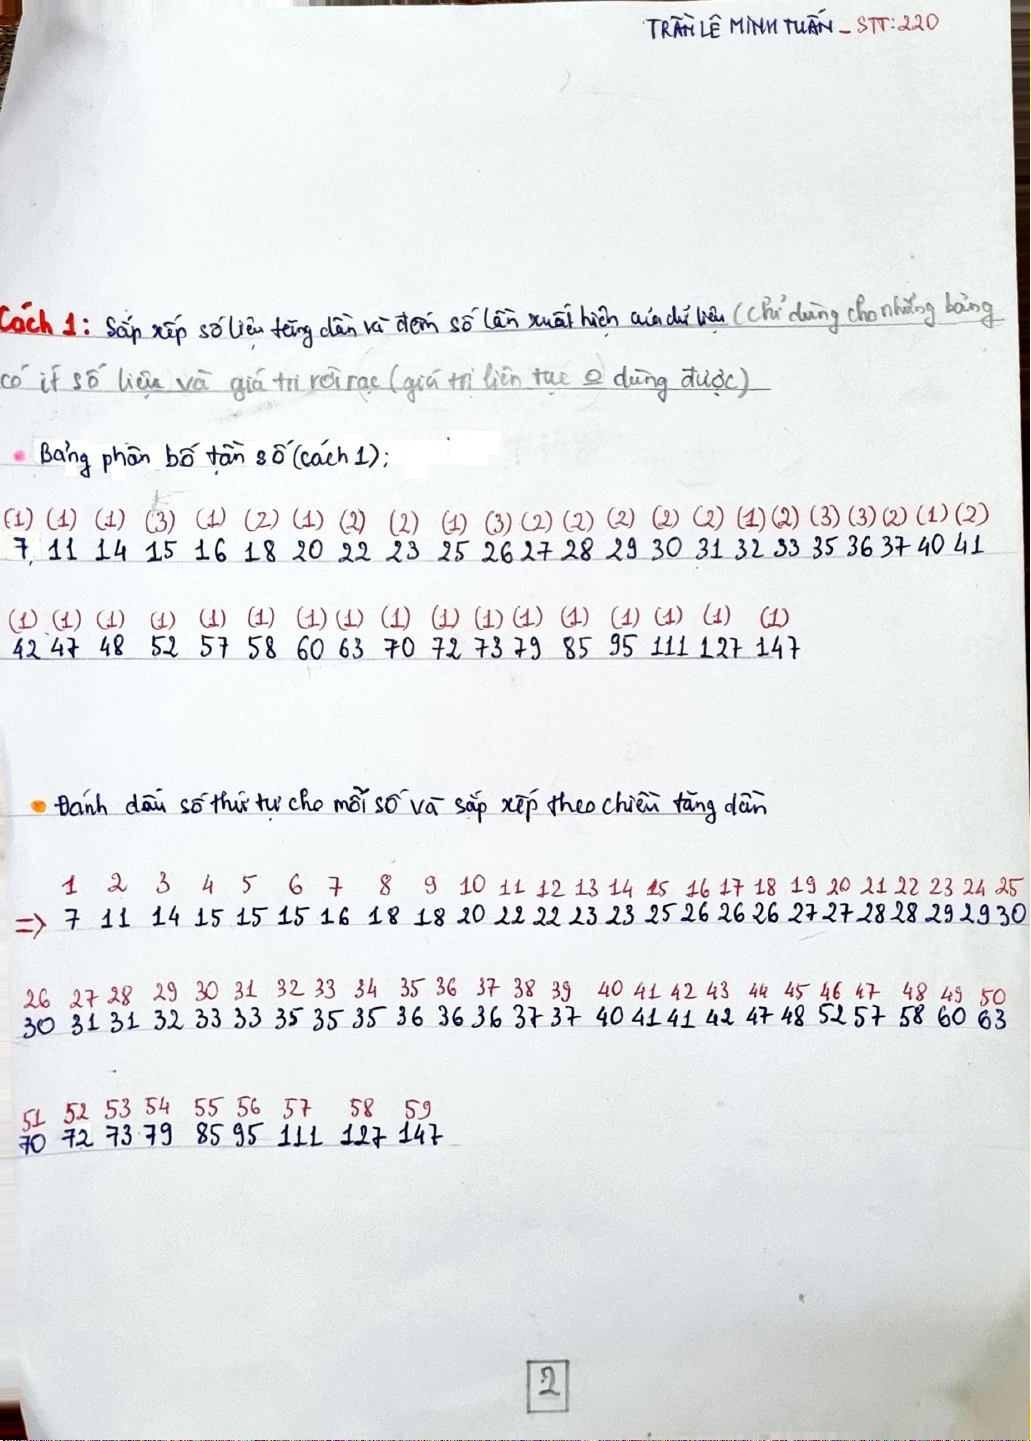 TRẦN LÊ MINH TUẤN - STT: 220
Cách 1: Sắp xếp số liệu tăng dần và đếm số lần xuất hiện của dữ liệu (chỉ dùng cho những bảng
có ít số liệu và giá trị rời rạc (giá trị liên tục O dùng được)
• Bảng phân bố tần số (cách 1):
(1) (1) (1) (3) (1) (2) (1) (2) (2) (1) (3) (2) (2) (2) (2) (2) (1) (2) (3) (3) (2) (1) (2)
7 11 14 15 16 18 20 22 23 25 26 27 28 29 30 31 32 33 35 36 37 40 41
(1) (1) (1) (1) (1) (1) (1) (1) (1) (1) (1) (1) (1) (1) (1) (1) (1)
42 47 48 52 57 58 60 63 70 72 73 79 85 95 111 127 147
• Đánh dấu số thứ tự cho mỗi số và sắp xếp theo chiều tăng dần
1 2 3 4 5 6 7 8 9 10 11 12 13 14 15 16 17 18 19 20 21 22 23 24 25
=> 7 11 14 15 15 15 16 18 18 20 22 22 23 23 25 26 26 26 27 27 28 28 29 29 30
26 27 28 29 30 31 32 33 34 35 36 37 38 39 40 41 42 43 44 45 46 47 48 49 50
30 31 31 32 33 33 35 35 35 36 36 36 37 37 40 41 41 42 47 48 52 57 58 60 63
51 52 53 54 55 56 57 58 59
70 72 73 79 85 95 111 127 147
2